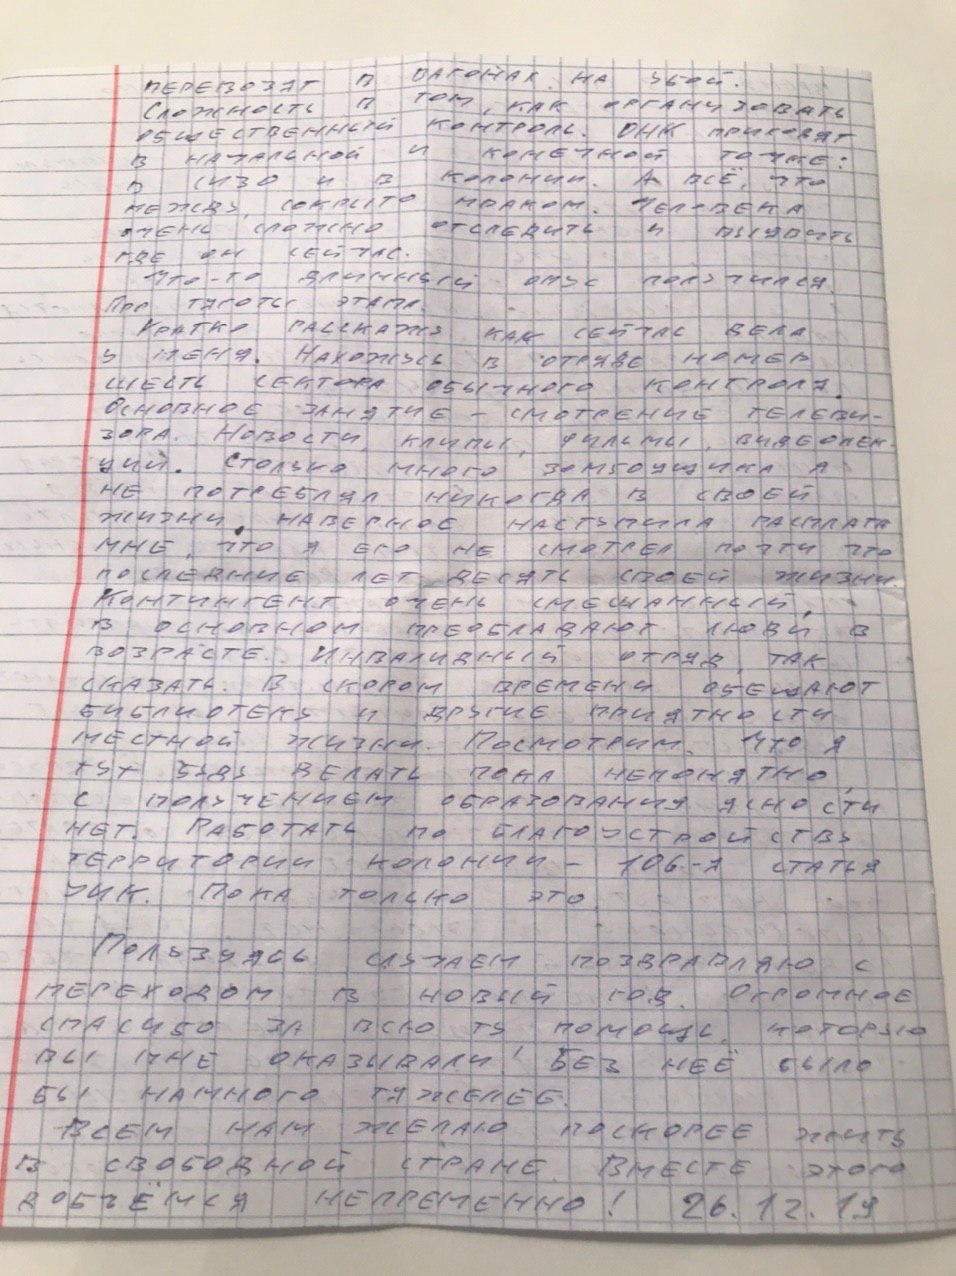 перевозят в вагонах на убой.
Сложность в том, как организовать
общественный контроль. ОНК приходят
в начальной и конечной точке:
в СИЗО и в колонии. А всё, что
между, сокрыто мраком. Человека
очень сложно отследить и выявить
где он сейчас.
Что-то длинный опус получился
про тяготы этапа.
Кратко расскажу как сейчас дела
у меня. Нахожусь в отряде номер
шесть сектора обычного контроля.
Основное занятие – смотрение телеви-
зора. Новости, клипы, фильмы, видеолек-
ции. Столько много зомбоящика я
не потреблял никогда в своей
жизни. Наверное наступила расплата
мне, что я его не смотрел почти что
последние лет десять своей жизни.
Контингент очень смешанный,
в основном преобладают люди в
возрасте. Инвалидный отряд, так
сказать. В скором времени обещают
библиотеку и другие приятности
местной жизни. Посмотрим. Что я
тут буду делать пока непонятно,
с получением образования ясности
нет. Работать по благоустройству
территории колонии – 106-я статья
УИК. Пока только это.
Пользуясь случаем поздравляю с
переходом в новый год. Огромное
спасибо за всю ту помощь, которую
вы мне оказывали! Без неё было
бы намного тяжелее.
Всем нам желаю поскорее жить
в свободной стране. Вместе этого
добьёмся непременно! 26.12.19